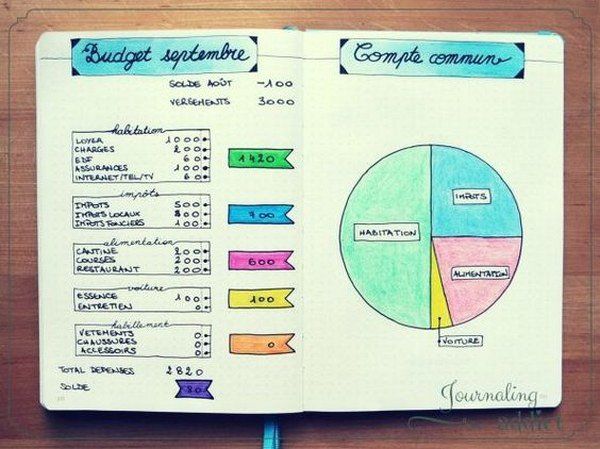 Budget septembre
SOLDE AOÛT -100
VERSEMENTS 3000
habitation
LOYER 1000
CHARGES 200
EDF 60
ASSURANCES 100
INTERNET/TEL/TV 60
1420
impôts
IMPOTS 500
IMPOTS LOCAUX
IMPOTS FONCIERS 100
700
alimentation
CANTINE 200
COURSES 200
RESTAURANT 200
600
voiture
ESSENCE 100
ENTRETIEN 0
100
habillement
VETEMENTS 0
CHAUSSURES 0
ACCESSOIRS 0
0
TOTAL DEPENSES 2820
SOLDE 80
Compte commun
HABITATION
IMPOTS
ALIMENTATION
VOITURE
Journaling
addict